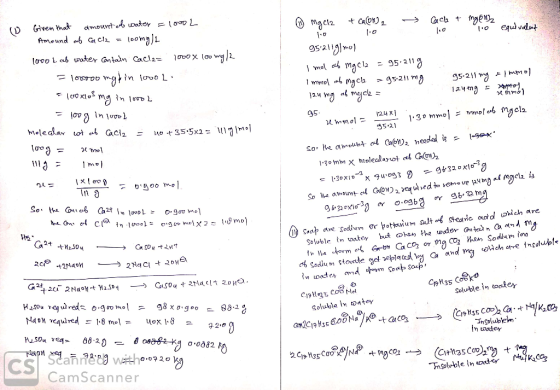 (i) Given that amount of water = 1000 L
Amound of CaCl2 = 100mg/L
1000 L of water contain CaCl2 = 1000 x 100 mg/L
= 100000 mg in 1000 L.
= 100x10³ mg in 1000 L
= 100 g in 1000 L
molecular wt of CaCl2 = 40 + 35.5x2 = 111 g/mol
100g = x mol
111 g = 1 mol
x = 1 x 100g / 111 g = 0.900 mol
So. the Con of Ca2+ in 1000 L = 0.900 mol
the Con of Cl⊖ in 1000 L = 0.900 mol x 2 = 1.8 mol
Ca2+ + H2SO4 → CaSO4 + 2H+
2Cl⊖ + 2NaOH → 2NaCl + 2OH⊖
Ca2+ 2Cl⊖ 2NaOH + H2SO4 → CaSO4 + 2NaCl + 2OH⊖
H2SO4 required = 0.900 mol = 98 x 0.900 = 88.2 g
NaOH required = 1.8 mol = 40 x 1.8 = 72.0 g
H2SO4 req = 88.2 g = 0.0882 kg
NaOH req = 72.0 g = 0.0720 kg
CS Scanned with
CamScanner
(ii) MgCl2 + Ca(OH)2 → CaCl2 + Mg(OH)2
1.0 1.0 1.0 1.0 equivalent
95.211 g/mol
1 mol of MgCl2 = 95.211 g
1 mmol of MgCl2 = 95.211 mg 95.211 mg = 1 mmol
124 mg of MgCl2 = 124 mg = x mmol
95.
x mmol = 124 x 1 / 95.21 1.30 mmol = mmol of MgCl2
So. the amount of Ca(OH)2 needed is =
1.30 mmol x molecular wt of Ca(OH)2
= 1.30x10-3 x 74.093 g = 96320x10-3 g
So the amount of Ca(OH)2 required to remove 124 mg of MgCl2 is
96320x10-3 g or 0.096 g or 96.32 mg
Soap are sodium or pottasium salt of stearic acid which are
soluble in water but when the water contain Ca and Mg
in the form of CaCO3 or MgCO3 then Sodium ion
of Sodium stearate get replaced by Ca and Mg which are insoluble
in water and form soap scum.
C17H35 COONa C17H35 COOK
soluble in water Soluble in water
2C17H35COO Na/K + CaCO3 → (C17H35COO)2 Ca + Na/K2CO3
Insoluble
in water
2C17H35COO K/Na + MgCO3 → (C17H35COO)2 Mg + Na/K2CO3
Insoluble in water